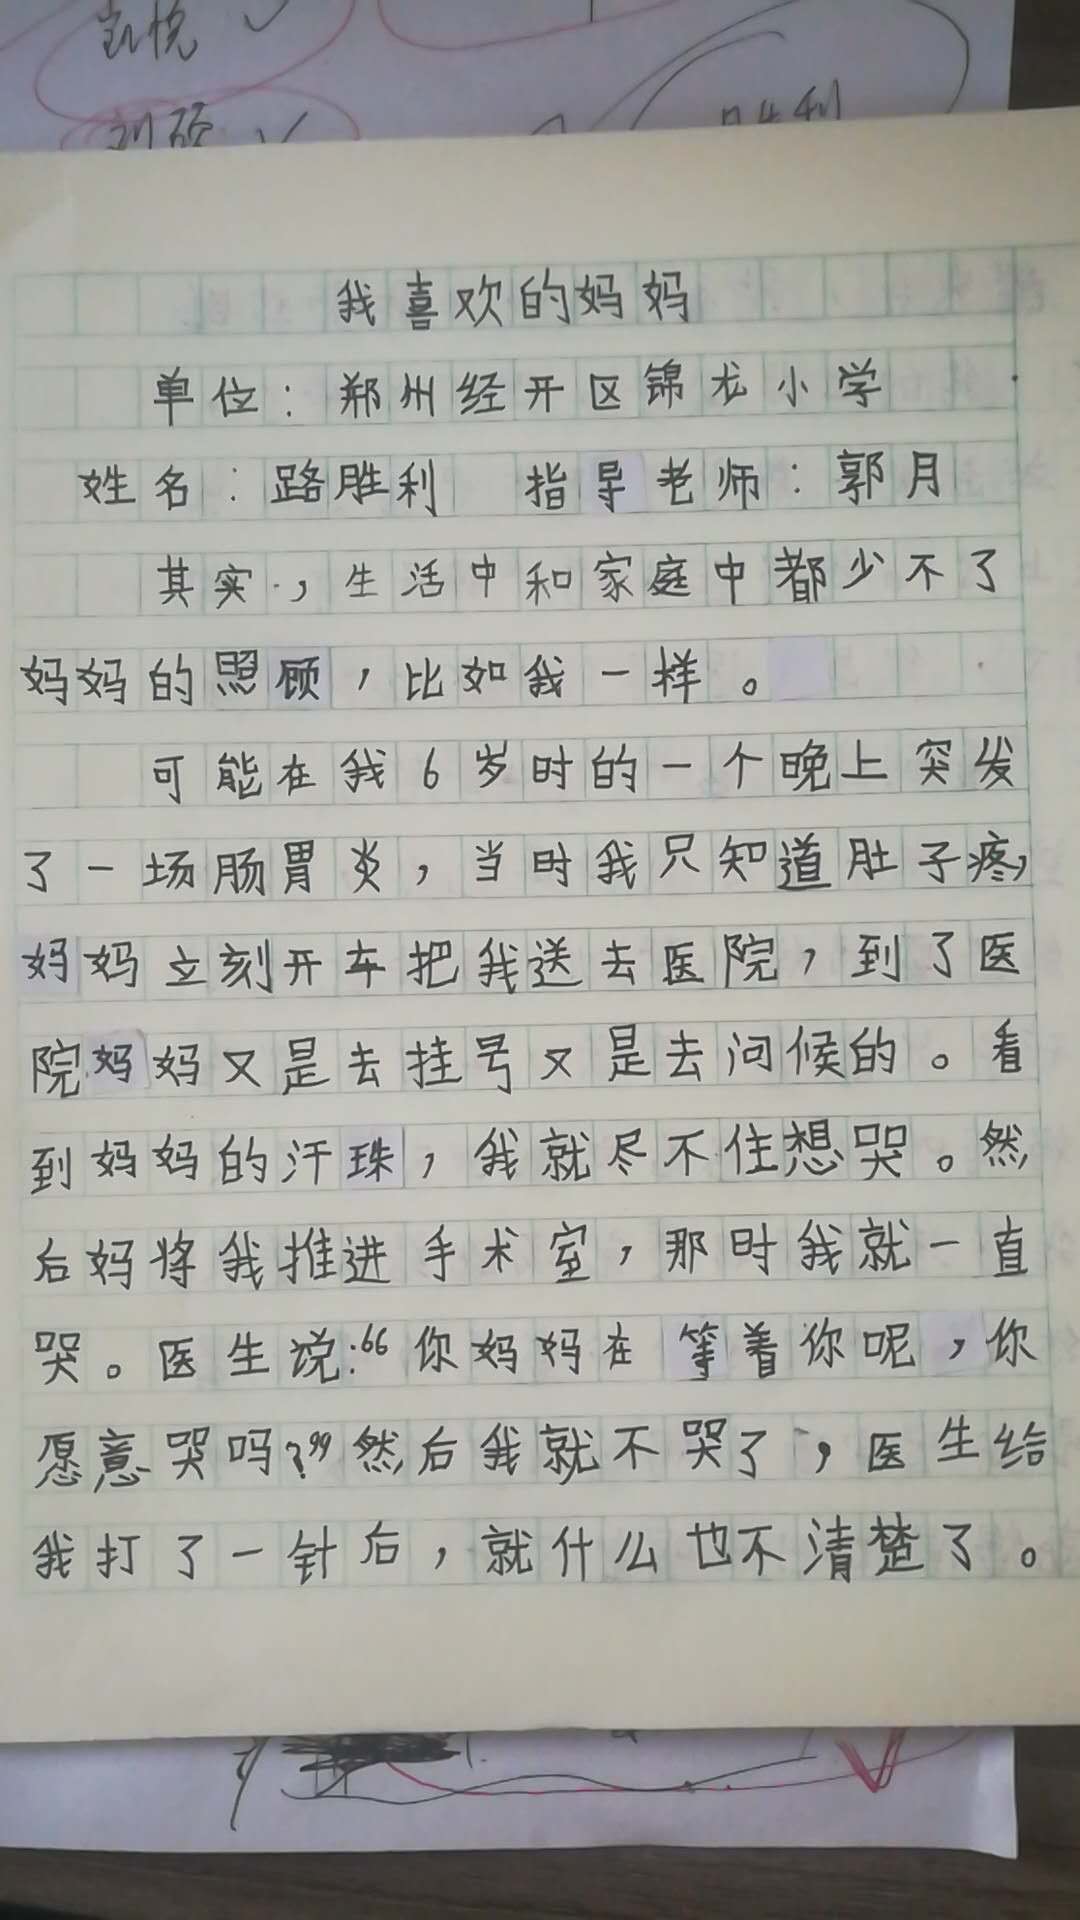 凯悦
刘硕
我喜欢的妈妈
单位：郑州经开区锦龙小学
姓名：路胜利 指导老师：郭月
其实，生活中和家庭中都少不了
妈妈的照顾，比如我一样。
可能在我6岁时的一个晚上突发
了一场肠胃炎，当时我只知道肚子疼，
妈妈立刻开车把我送去医院，到了医
院妈妈又是去挂号又是去问候的。看
到妈妈的汗珠，我就尽不住想哭。然
后妈将我推进手术室，那时我就一直
哭。医生说：“你妈妈在等着你呢，你
愿意哭吗？”然后我就不哭了，医生给
我打了一针后，就什么也不清楚了。